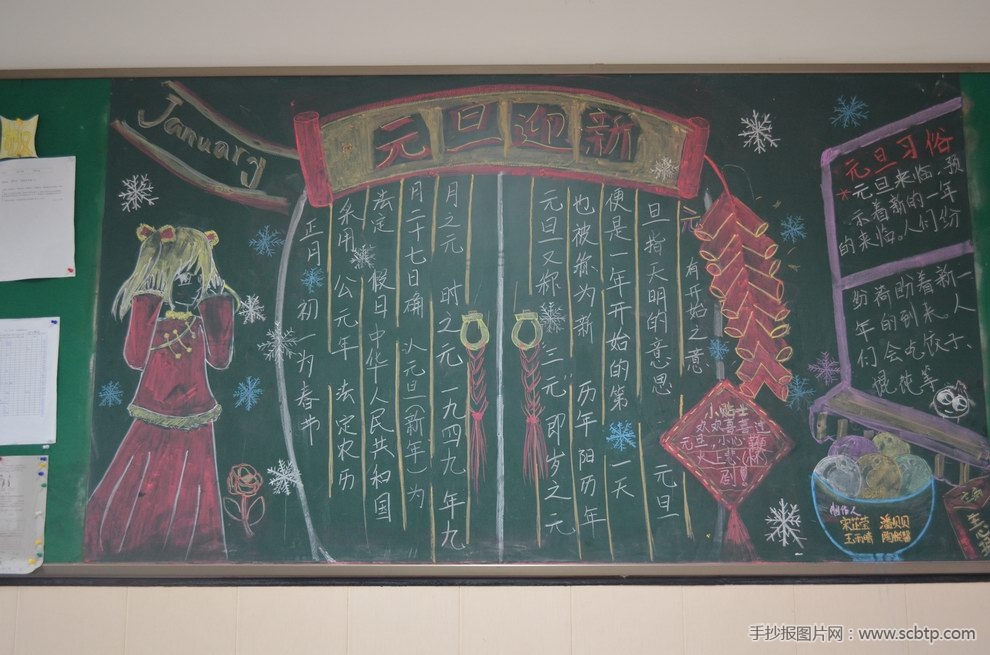 January
元旦迎新
元 有开始之意
旦 指天明的意思 元旦
便是一年开始的第一天
也被称为新 历年阳历年
元旦又称 三元 即岁之元
月之元 时之元 一九四九年九
月二十七日确 认元旦(新年)为
法定 假日 中华人民共和国
采用 公元年 法定农历
正月 初一为春节
元旦习俗
元旦来临,预
示着新的一年
的来临。人们纷
纷商 着新一
年的到来,人
们会吃饺子、
馄饨等
小贴士
元旦
制作人
潘贝贝
手抄报图片网：www.scbtp.com